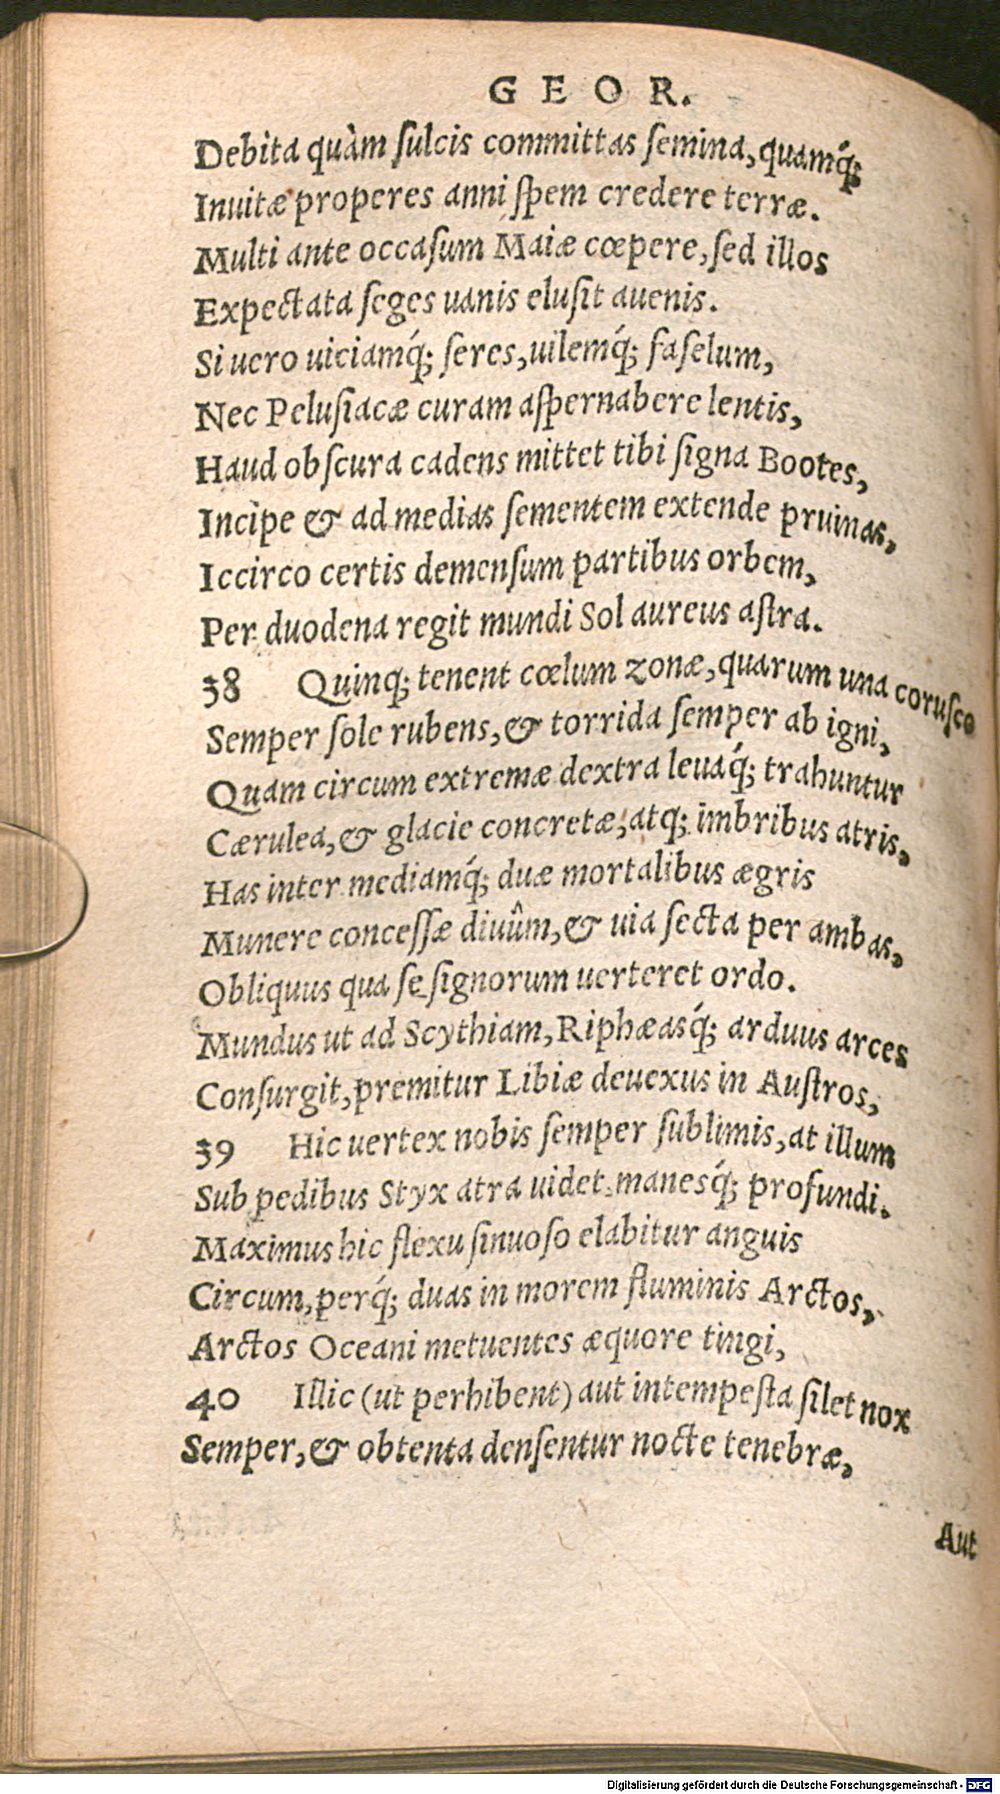 GEOR.
Debita quàm ſulcis committas ſemina, quamq́;
Inuitæ properes anni ſpem credere terræ.
Multi ante occaſum Maiæ cœpere, ſed illos
Expectata ſeges uanis eluſit auenis.
Si uero uiciamq́; ſeres, uilemq́; faſelum,
Nec Peluſiacæ curam aſpernabere lentis,
Haud obſcura cadens mittet tibi ſigna Bootes,
Incipe & ad medias ſementem extende pruinas,
Iccirco certis demenſum partibus orbem,
Per duodena regit mundi Sol aureus aſtra.
38 Quinq; tenent cœlum zonæ, quarum una coruſco
Semper ſole rubens, & torrida ſemper ab igni,
Quam circum extremæ dextra leuaq́; trahuntur
Cærulea, & glacie concretæ, atq; imbribus atris,
Has inter mediamq́; duæ mortalibus ægris
Munere conceſſæ diuûm, & uia ſecta per ambas,
Obliquus qua ſe ſignorum uerteret ordo.
Mundus ut ad Scythiam, Riphæasq́; arduus arces
Conſurgit, premitur Libiæ deuexus in Auſtros,
39 Hic uertex nobis ſemper ſublimis, at illum
Sub pedibus Styx atra uidet, manesq́; profundi.
Maximus hic flexu ſinuoſo elabitur anguis
Circum, perq́; duas in morem fluminis Arctos,
Arctos Oceani metuentes æquore tingi,
40 Illic (ut perhibent) aut intempeſta ſilet nox
Semper, & obtenta denſentur nocte tenebræ,
Aut
Digitalisierung gefördert durch die Deutsche Forschungsgemeinschaft - DFG